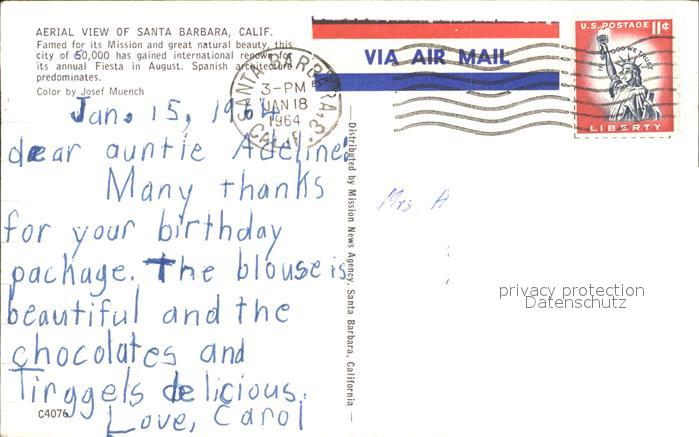 AERIAL VIEW OF SANTA BARBARA, CALIF.
Famed for its Mission and great natural beauty, this
city of 60,000 has gained international renown for
its annual Fiesta in August. Spanish architecture
predominates.
Color by Josef Muench
SANTA BARBARA,
CALIF.
3-PM
JAN 18
1964
VIA AIR MAIL
U.S. POSTAGE 11¢
IN GOD WE TRUST
LIBERTY
Jan. 15, 1964
dear auntie Adeline!
Many thanks
for your birthday
package. The blouse is
beautiful and the
chocolates and
Tirggels delicious.
Love, Carol
C4076
— Distributed by Mission News Agency, Santa Barbara, California —
Mrs A
privacy protection
Datenschutz